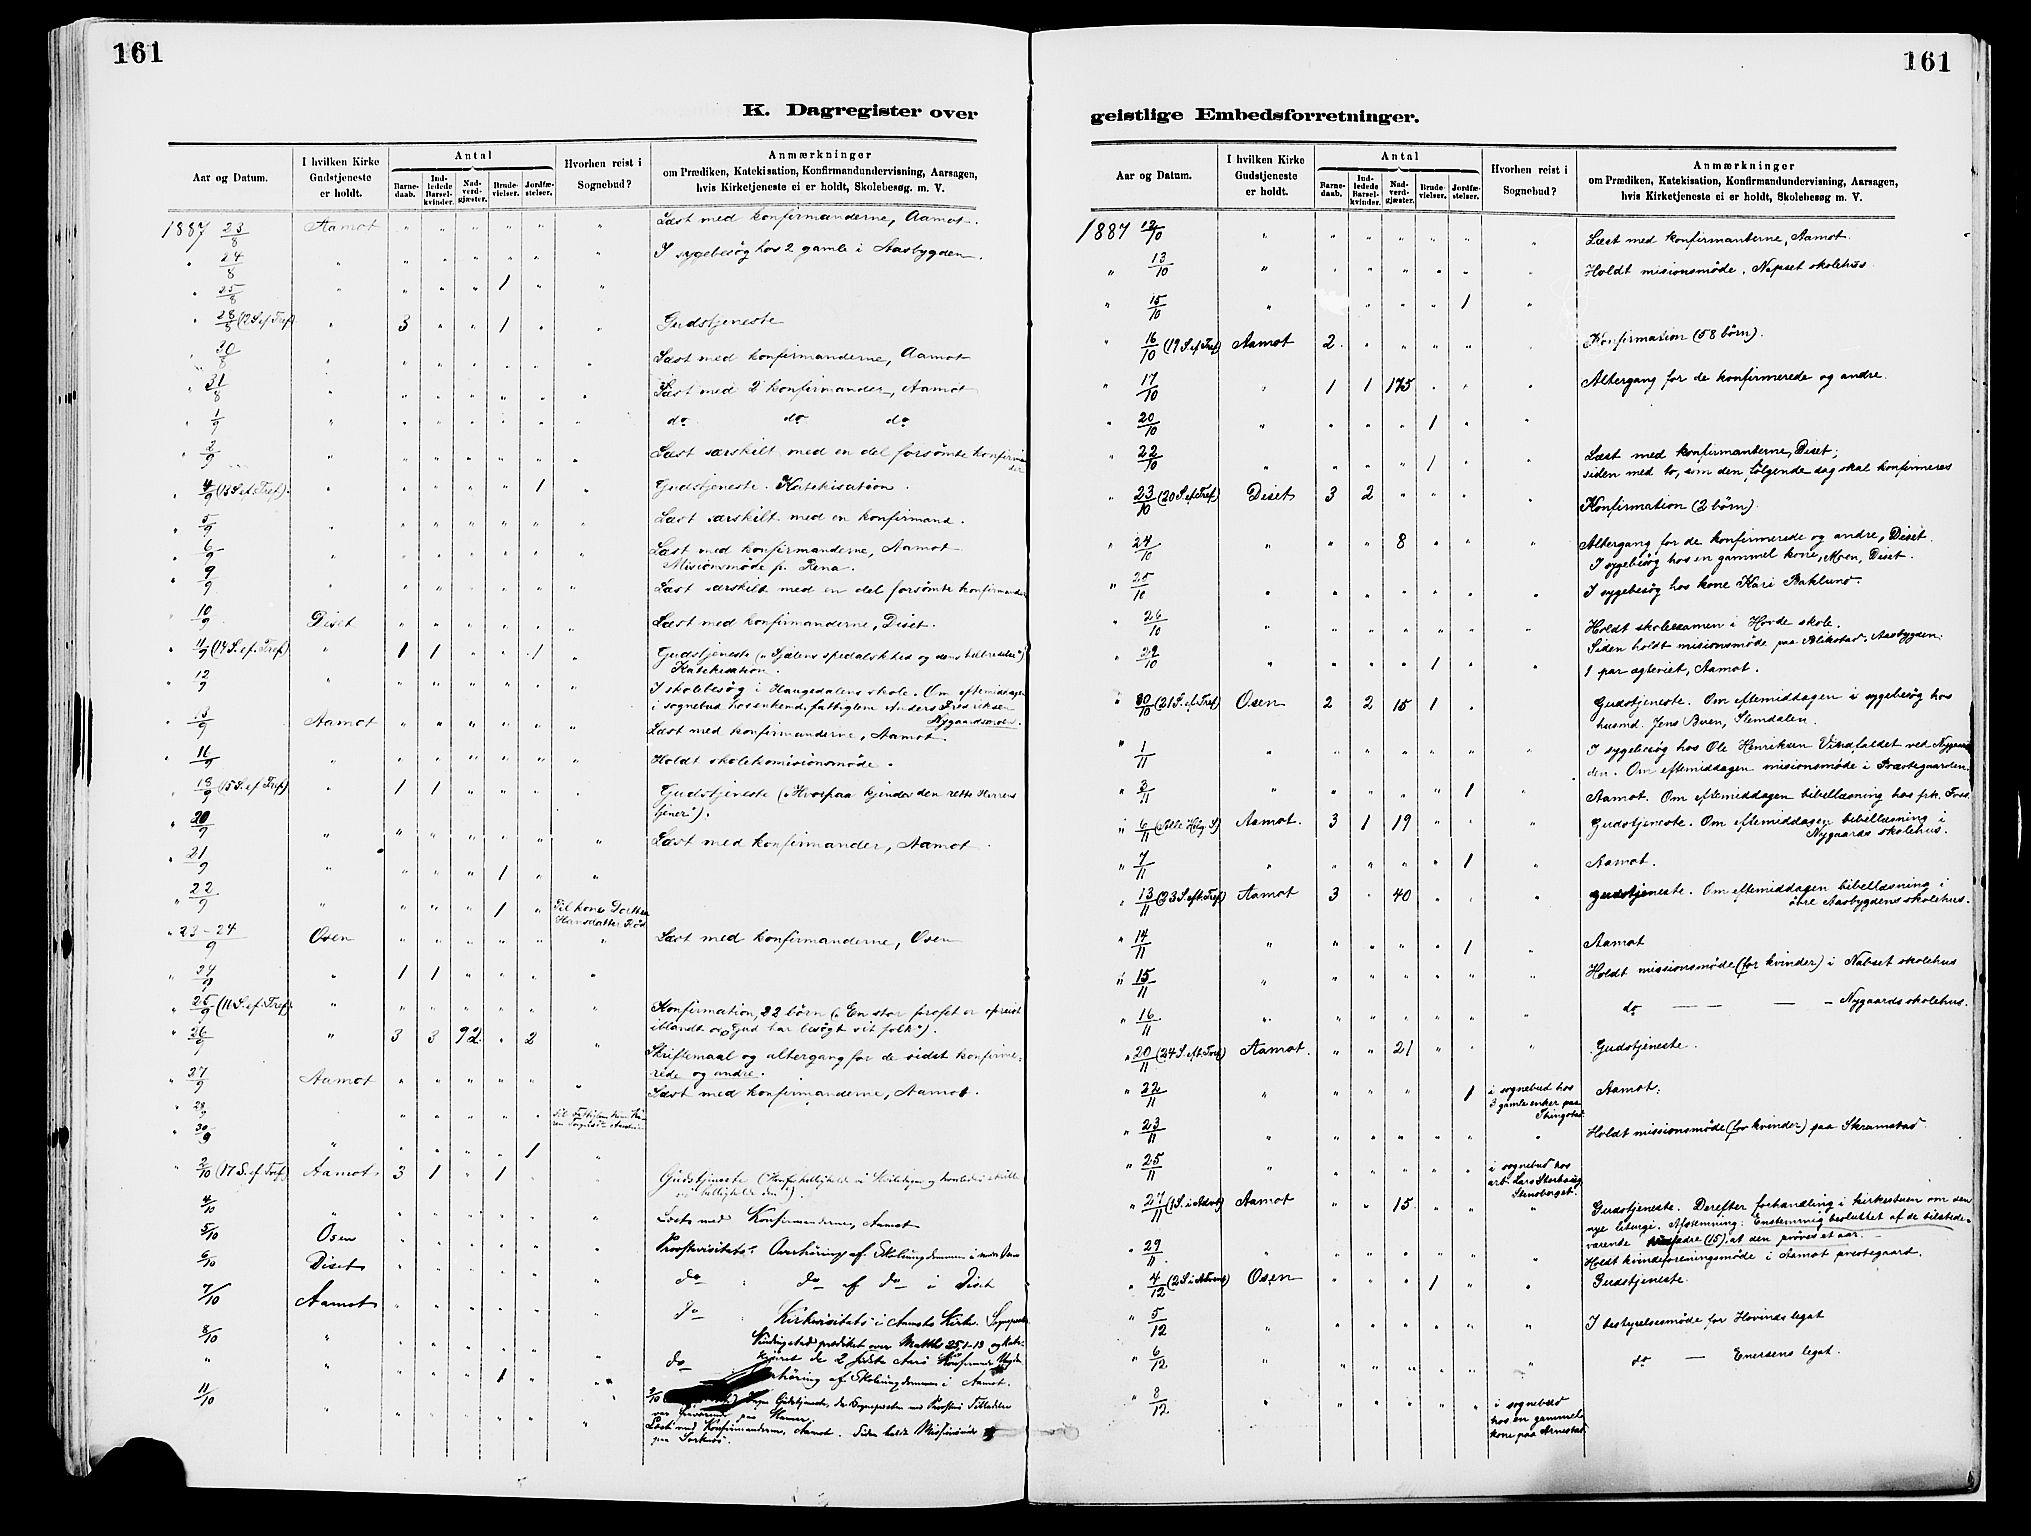 161
161
K. Dagregister over
geistlige Embedsforretninger.
Aar og Datum.
I hvilken Kirke Gudstjeneste er holdt.
Antal
Barnedaab. Indledede Barselkvinder. Nadverdgjæster. Brudevielser. Jordfæstelser.
Hvorhen reist i Sognebud?
Anmærkninger
om Prædiken, Katekisation, Konfirmandundervisning, Aarsagen,
hvis Kirketjeneste ei er holdt, Skolebesøg m. V.
1887 23/8 Aamot " " " " " " Læst med konfirmanderne, Aamot.
" 24/8 " " " " " " " I sygebesøg hos 2 gamle i Aasbygden.
" 25/8 " " " " 1 " "
" 28/8 (12 S. ef. Tref.) " 3 " " 1 " " Gudstjeneste
" 30/8 " " " " " " Læst med konfirmanderne, Aamot
" 31/8 " " " " " " Læst med 2 konfirmander, Aamot
" 1/9 " " " " " " " do do do
" 2/9 " " " " " " " Læst særskilt med en del forsømte konfirmander
" 4/9 (13 S. ef. Tref.) " " " " " 1 " Gudstjeneste. Katekisation.
" 5/9 " " " " " " " Læst særskilt med en konfirmand.
" 6/9 " " " " " " " Læst med konfirmanderne, Aamot
Misionsmøde p. Rena.
" 9/9 " " " " " " " Læst særskilt med en del forsømte konfirmander
" 10/9 Diset " " " " " " Læst med konfirmanderne, Diset.
" 11/9 (14 S. ef. Tref.) " 1 1 " " 1 " Gudstjeneste („Sjælens spedalskhed og dens helbredelse")
Katekisation.
" 12/9 " " " " " " " I skolebesøg i Haugedalens skole. Om eftermiddagen
i sognebud hos enkem. fattiglem Anders Fredriksen
Nygaardsenden.
" 13/9 Aamot " " " " " " Læst med konfirmanderne, Aamot.
" " " " " " " Holdt skolekomisionsmøde.
" 18/9 (15 S. ef Tref) " 1 1 " " " " Gudstjeneste („Hvorpaa kjendes den rette Herrens
tjener").
" 20/9 " " " " " " " Læst med konfirmander, Aamot.
" 21/9 " " " " 1 " "
" 22/9 " " " " 1 " Til kone Dorthea
Hansdatter Rød
" 23-24/9 Osen " " " " " " Læst med konfirmanderne, Osen
" 24/9 " 1 1 " " " "
" 25/9 " " " Konfirmation, 22 børn („En stor profet er opreist
iblandt os, Gud har besøgt sit folk").
" 26/9 " 3 3 92 " 2 " Skriftemaal og altergang for de sidst konfirme-
rede og andre.
" 27/9 Aamot " " " " " " Læst med konfirmanderne, Aamot.
" 28/9 " " " " "
" 30/9 " " " " " 1 "
" 2/10 (17 S. ef. Tref) Aamot 3 1 " 1 " " Gudstjeneste
4/10 " " " " " " " Læst med Konfirmanderne, Aamot
5/10 Osen " " " " " " Proostevisitats. Overhøring af Skoleungdommen i
6/10 Diset " " " " " " do : do af do i Diset
7/10 Aamot " " " " " " do Kirkevisitats i Aamots Kirke. Sognepresten
8/10 " " " " " " " Kindingstad prædiket over Matth: 25,1-13
" " " " " 1 " " do af Skoleungdommen i Aamot.
11/10 " " " " " " " Læst med Konfirmanderne, Aamot. Siden holdt Missionsmøde
Aar og Datum.
I hvilken Kirke Gudstjeneste er holdt.
Antal
Barnedaab. Indledede Barselkvinder. Nadverdgjæster. Brudevielser. Jordfæstelser.
Hvorhen reist i Sognebud?
Anmærkninger
om Prædiken, Katekisation, Konfirmandundervisning, Aarsagen,
hvis Kirketjeneste ei er holdt, Skolebesøg m. V.
1887 12/10 " " " " " " " Læst med konfirmanterne, Aamot.
" 13/10 " " " " " " " Holdt misionsmøde, Napset skolehus.
" 15/10 " " " " 1 "
" 16/10 (19 S. ef Tref) Aamot 2 " " " " " Konfirmation (58 børn).
" 17/10 " 1 1 175 " " " Altergang for de konfirmerede og andre.
" 20/10 " " " " 1 " "
" 22/10 " " " " 1 " " Læst med konfirmanterne, Diset;
siden med to, som den følgende dag skal konfirmeres
" 23/10 (20 S. ef Tref) Diset 3 2 " " " " Konfirmation (2 børn).
" 24/10 " " " 8 " " " Altergang for de konfirmerede og andre, Diset.
I sygebesøg hos en gammel kone, Moen, Diset.
" 25/10 " " " " " " " I sygebesøg hos kone Kari Baklund.
" 26/10 " " " " " " " Holdt skoleexamen i Hovde skole.
Siden holdt misionsmøde paa Blikstad, Aasbygden.
" 29/10 " " " " 1 " " 1 par ægteviet, Aamot.
" 30/10 (21 S. ef. Tref) Osen 2 2 15 1 " Gudstjeneste. Om eftemiddagen i sygebesøg hos
husmd. Jens Buen, Slemdalen.
" 1/11 " " " " " " " I sygebesøg hos Ole Henriksen Vindfaldet ved Nygaar
den. Om eftemiddagen misionsmøde i Præstegaarden.
" 2/11 " " " " " 1 " Aamot. Om eftemiddagen bibellæsning hos frk. Foss.
" 6/11 (Alle Helg. S) Aamot. 3 1 19 " " " Gudstjeneste. Om eftemiddagen bibellæsning i
Nygaards skolehus.
" 7/11 " " " " " 1 " Aamot.
" 13/11 (23 S. eft. Tref) Aamot 3 " 40 " " " Gudstjeneste. Om eftemiddagen bibellæsning i
øvre Aasbygdens skolehus.
" 14/11 " " " " " 1 " Aamot
" 15/11 " " " " " " " Holdt missionsmøde (for kvinder) i Nabset skolehus
" 16/11 " " " " " " " do — — — Nygaards skolehus.
" 20/11 (24 S. eft. Tref) Aamot. " " 21 " " " Gudstjeneste.
" 22/11 " " " " " 1 i sognebud hos
3 gamle enker paa
Thingstad. Aamot.
" 23/11 " " " " " " " Holdt missionsmøde (for kvinder) paa Skramstad.
" 25/11 " " " " " " i sognebud hos
arb. Lars
" 27/11 (1 S. i Advt) Aamot " " 15. " " " Gudstjeneste. Derefter forhandling i kirkestuen om den
nye liturgi. Afstemning: Enstemmig besluttet af de tilstede-
værende (15), at den prøves et aar.
" 29/11 " " " " " " " Holdt kvindeforeningsmøde i Aamot prestegaard.
" 4/12 (2 S. i Advent) Osen " " " 1 " " Gudstjeneste.
" 5/12 " " " " " " " I bestyrelsesmøde for Hovinds legat
" 6/12 " " " " " " " do — Enersens legat.
" 8/12 " " " " " " i sognebud
hos en gammel
kone paa Arnestad.